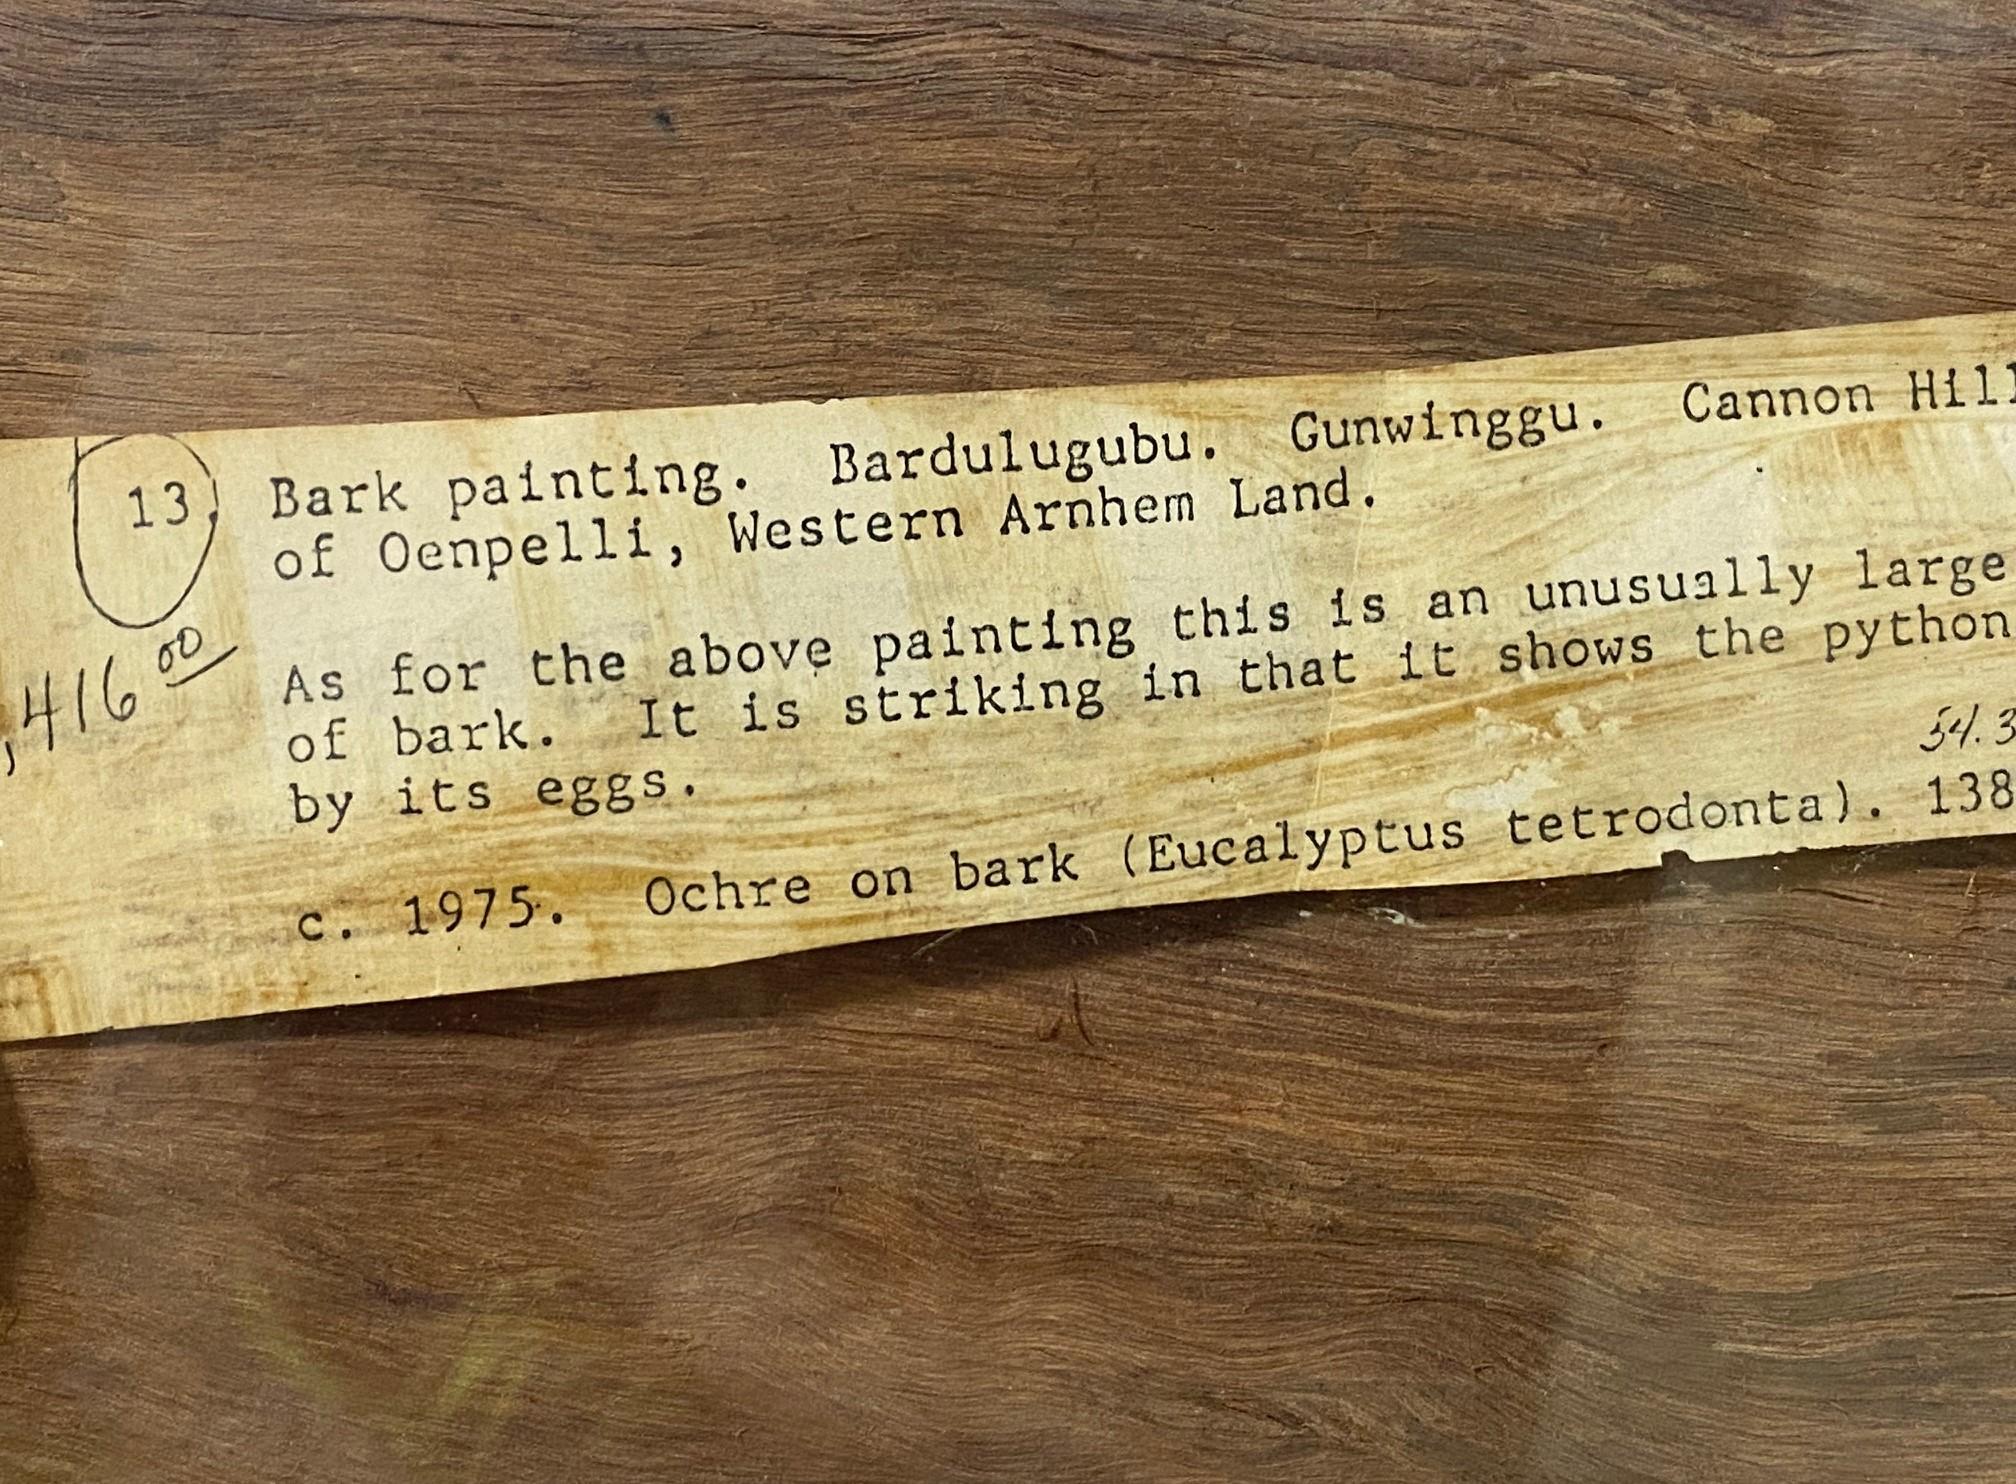 13. Bark painting. Bardulugubu. Gunwinggu. Cannon Hill
of Oenpelli, Western Arnhem Land.
,416 00
As for the above painting this is an unusually large
of bark. It is striking in that it shows the python
by its eggs.
54.3
c. 1975. Ochre on bark (Eucalyptus tetrodonta). 138